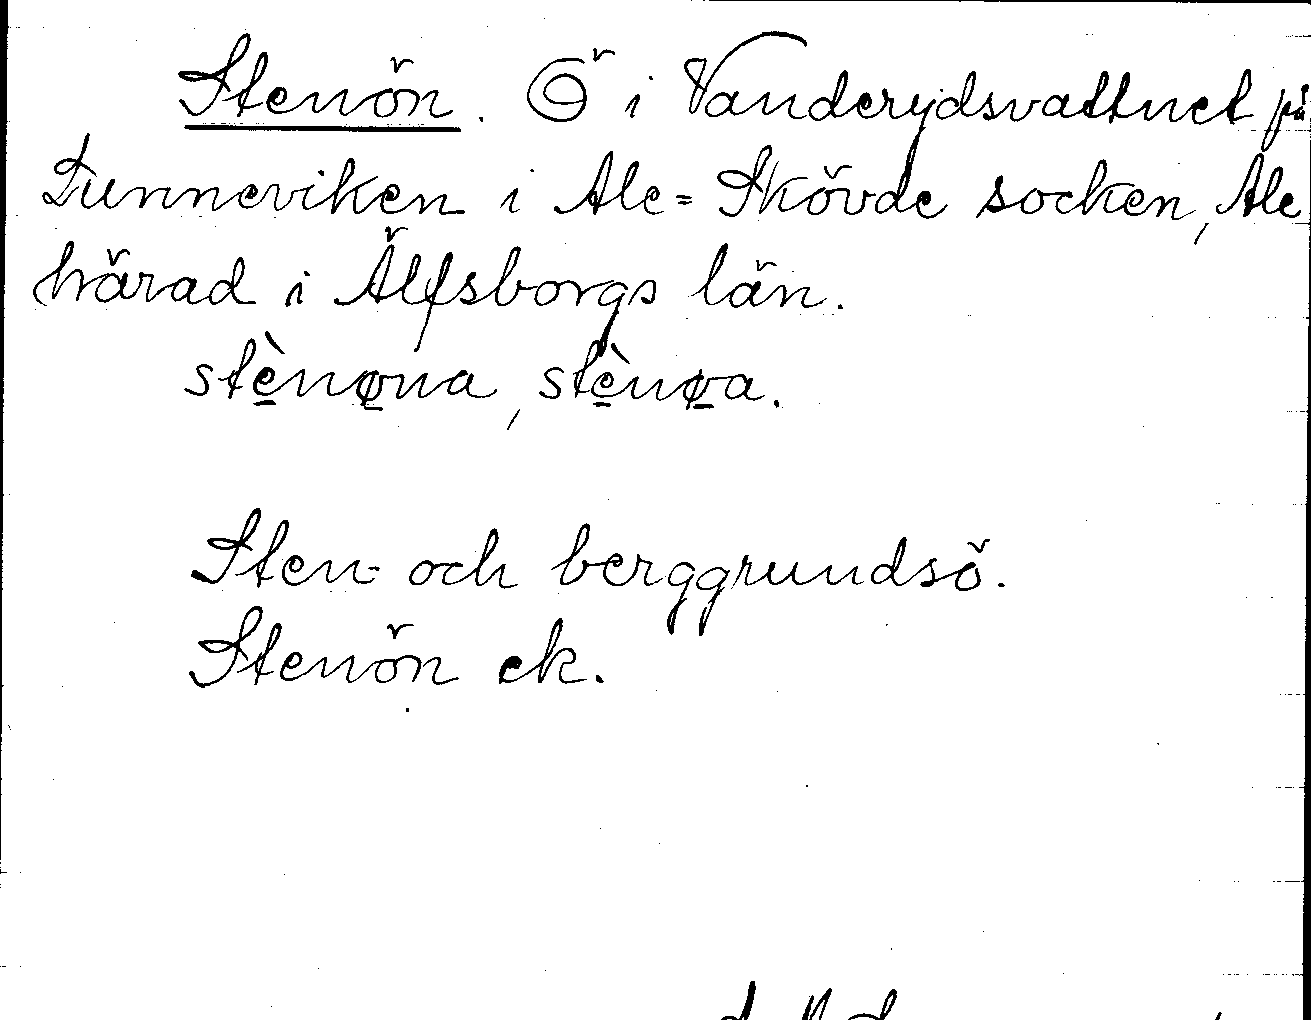 Stenön. Ö i Vanderydsvattnet på
Tunneviken i Ale=Skövde socken, Ale
härad i Älfsborgs län.
stènøna, stènøa.
Sten- och berggrundsö.
Stenön ek.